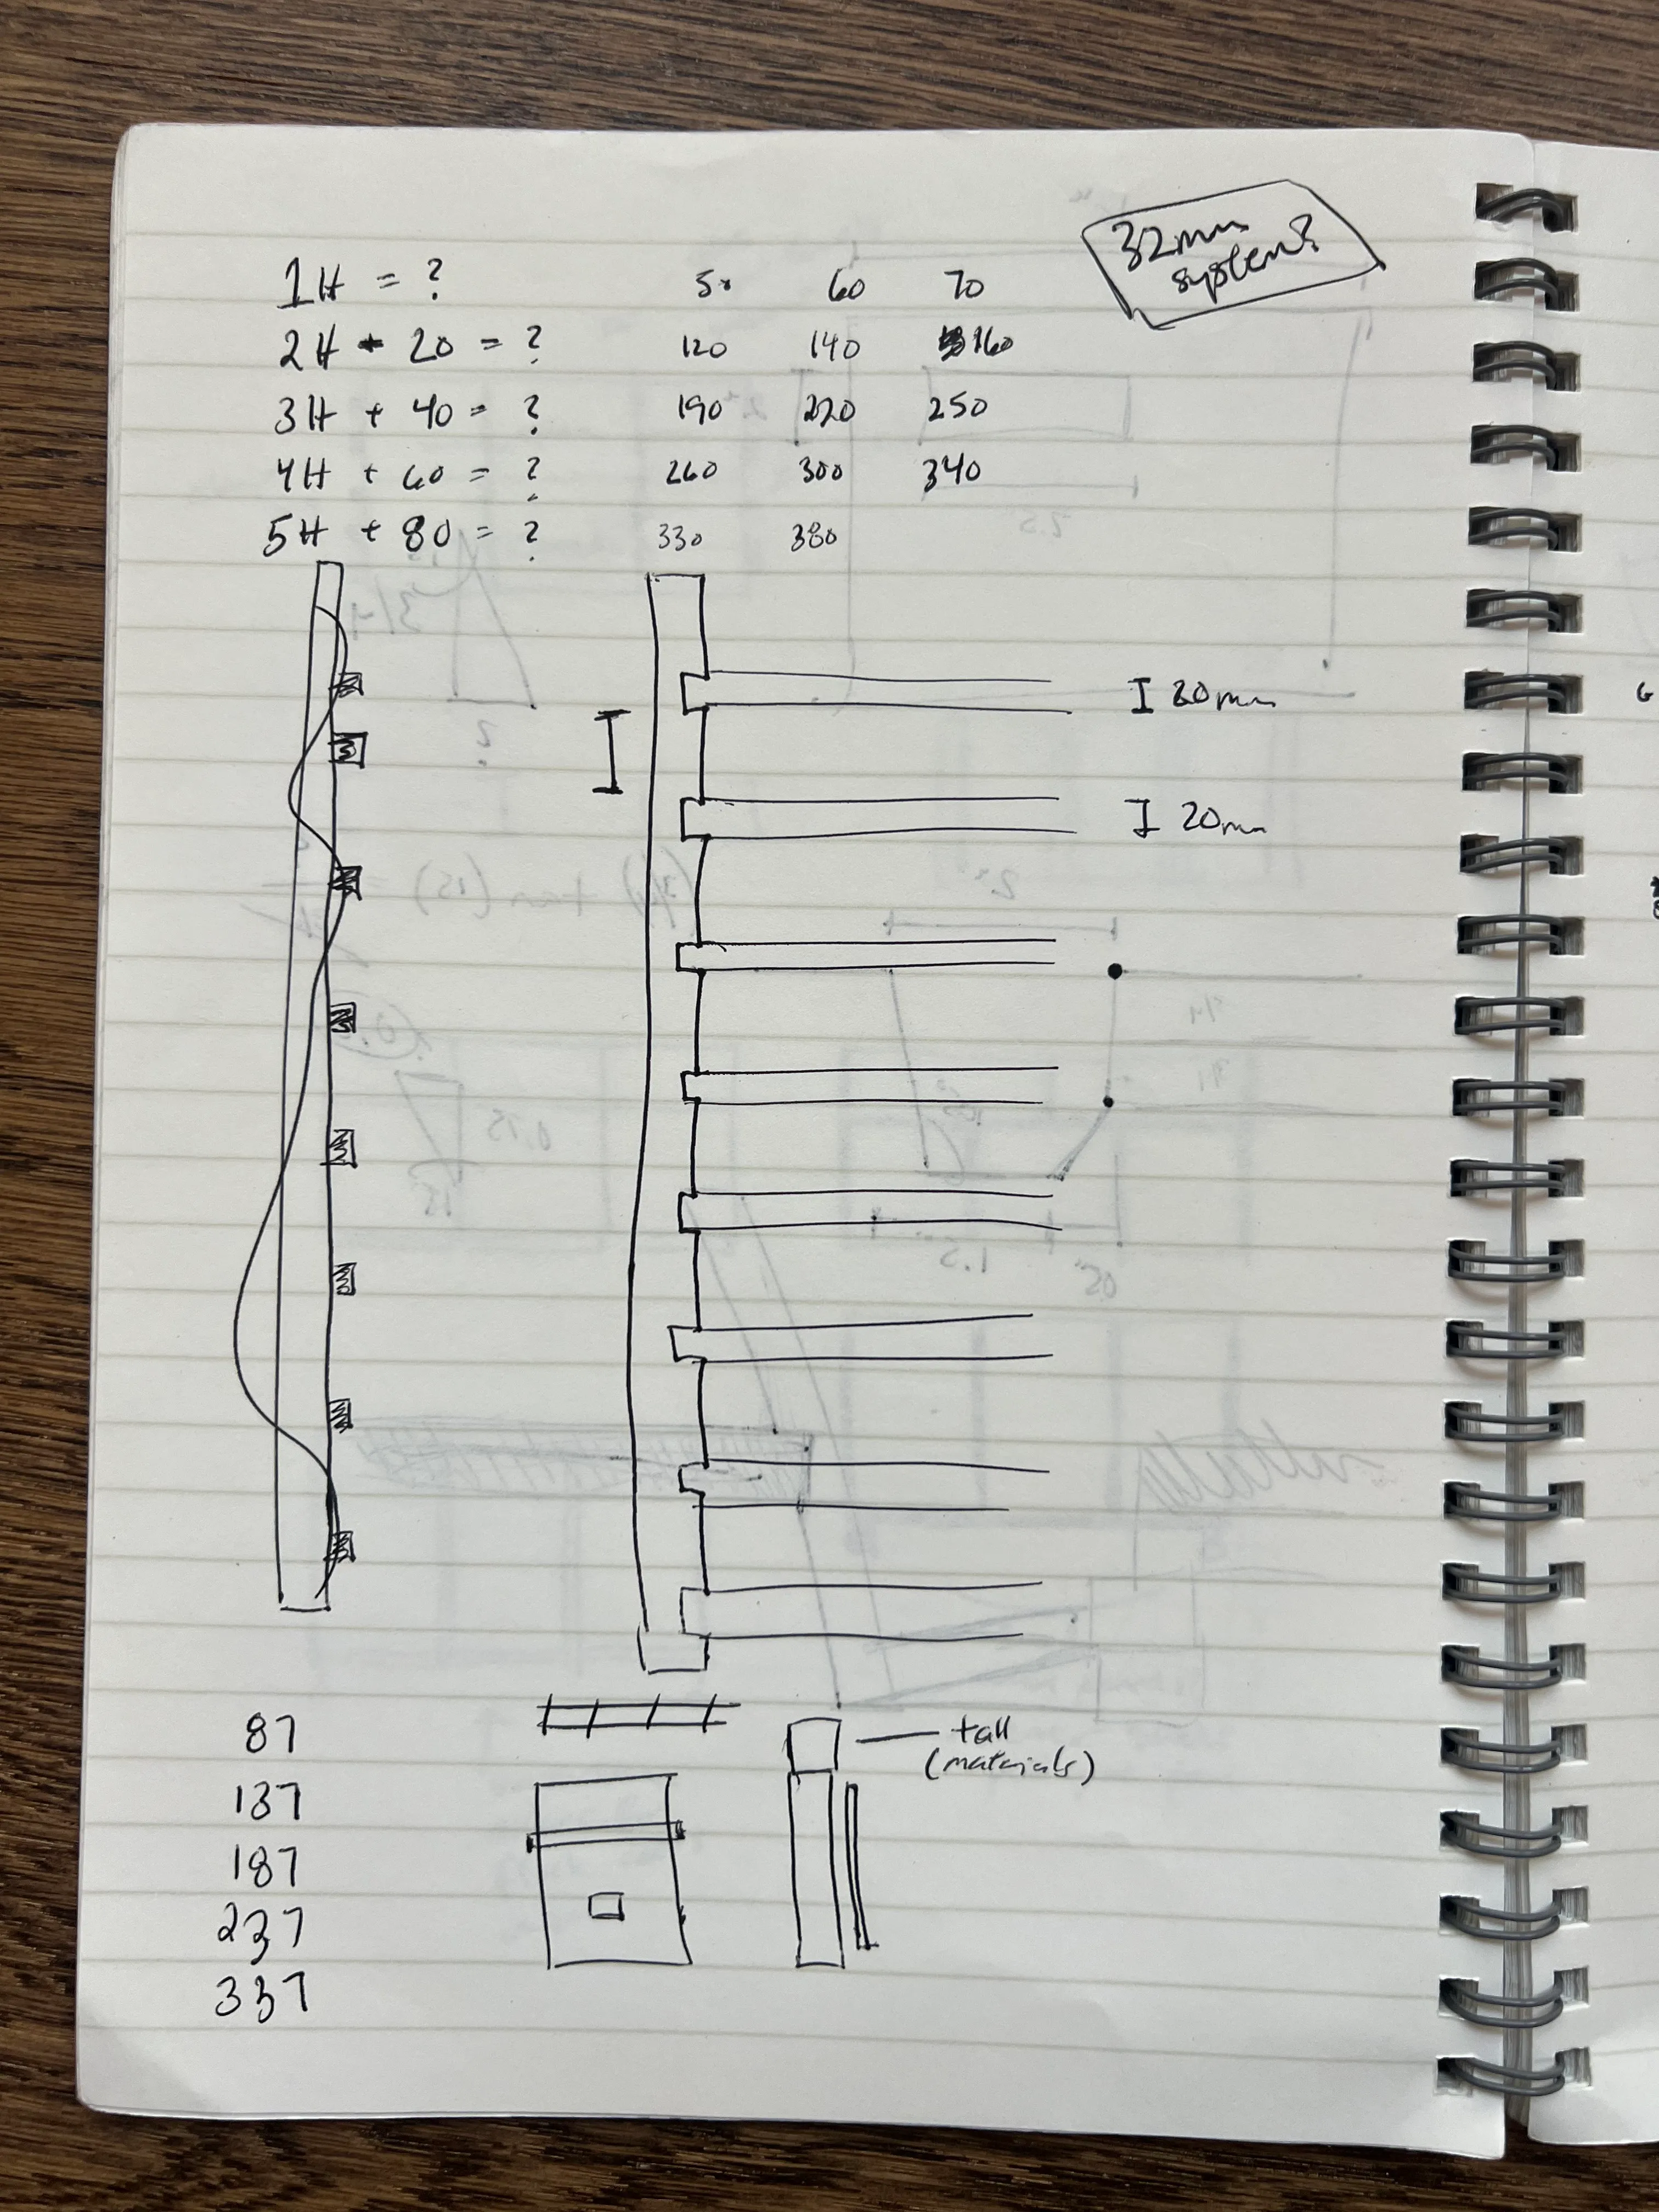 32mm
system?
1H = ? 50 60 70
2H + 20 = ? 120 140 160
3H + 40 = ? 190 220 250
4H + 60 = ? 260 300 340
5H + 80 = ? 330 380
I 20mm
I 20mm
87
137
187
237
337
tall
(materials)